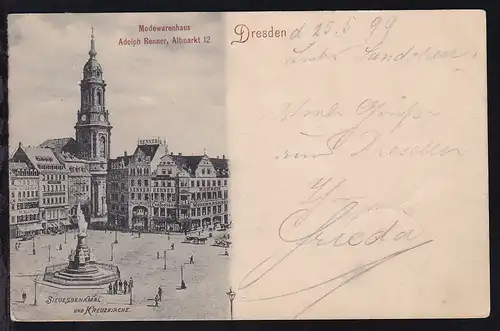 Modewarenhaus
Adolph Renner, Altmarkt 12
Dresden d 25.5 99
Grüße
aus Dresden
Frieda
RENNER
SIEGESDENKMAL
UND KREUZKIRCHE.